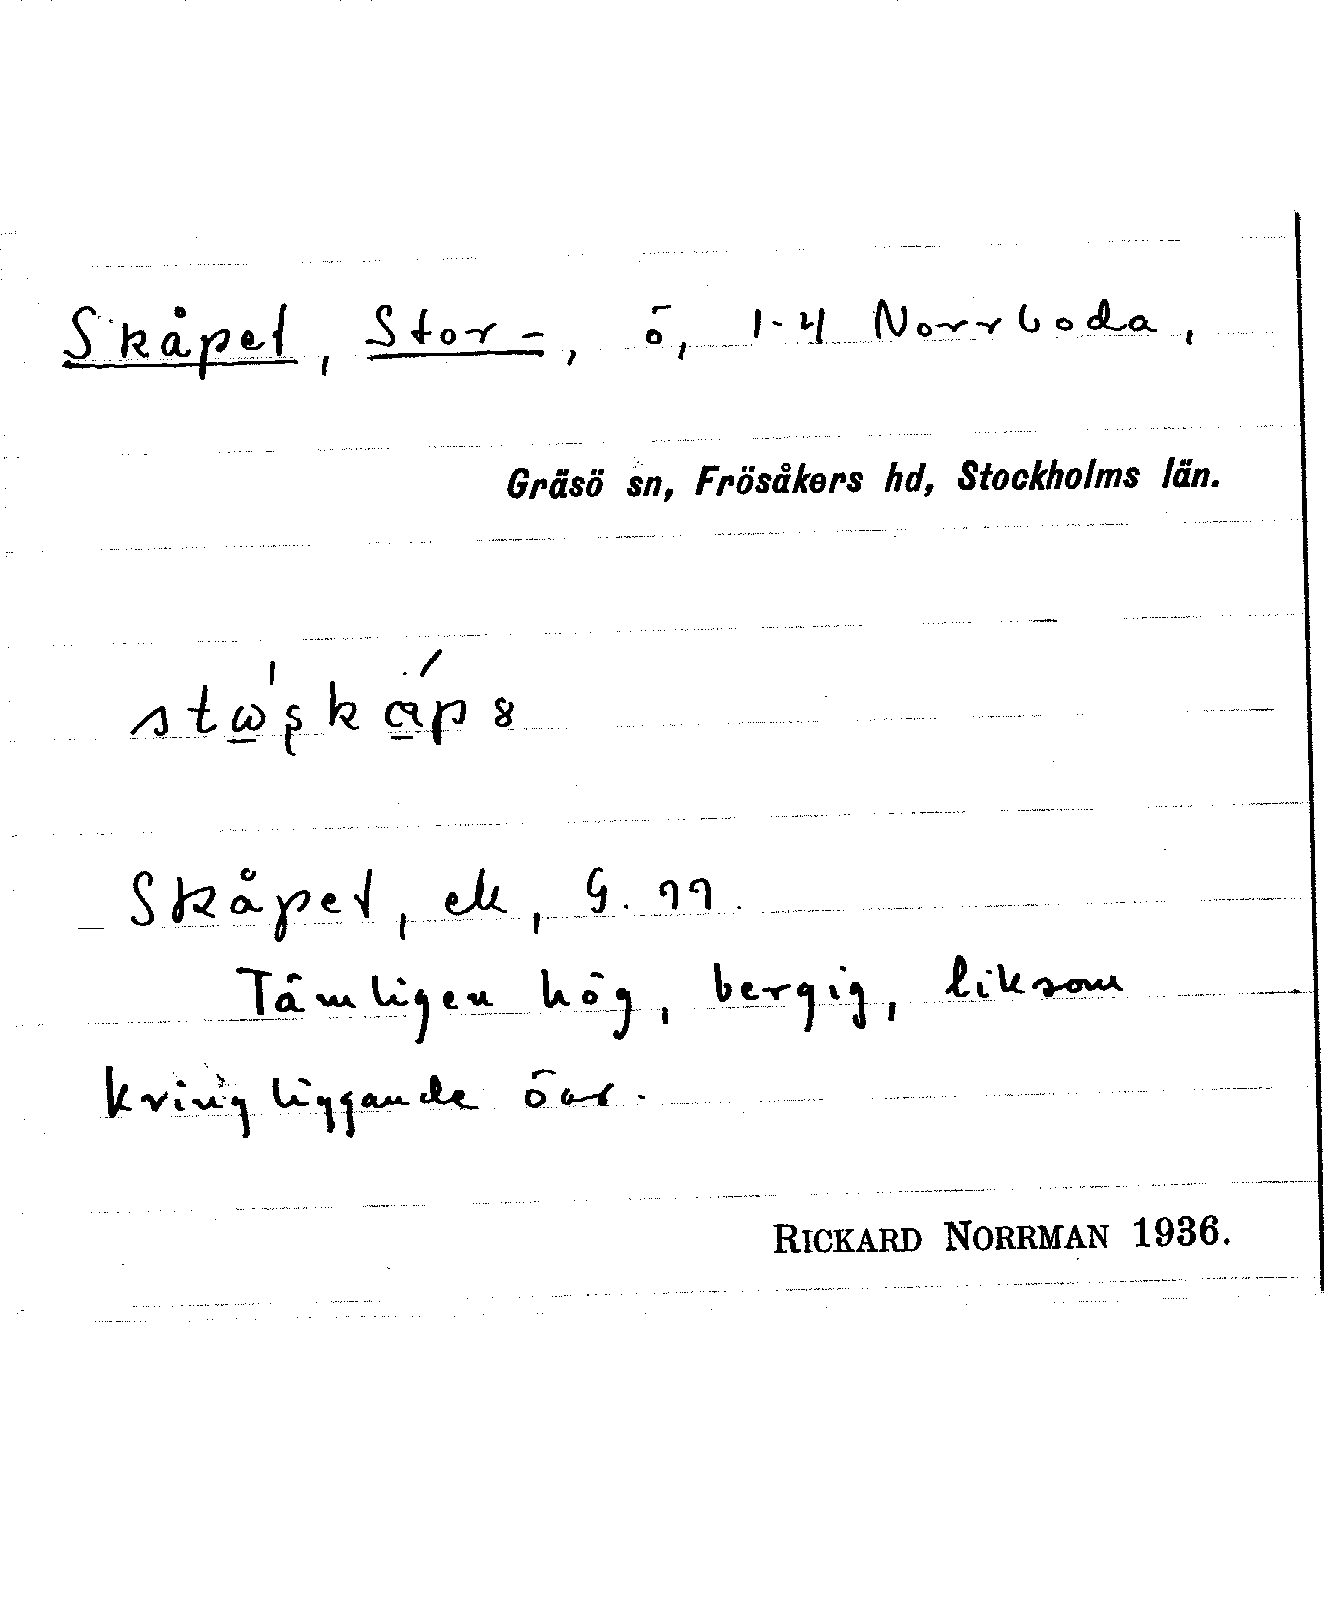 Skåpet, Stor-, ö, 1-4 Norrboda,
Gräsö sn, Frösåkers hd, Stockholms län.
Skåpet, ek, G. 99.
Tämligen hög, bergig, liksom
kringliggande öar.
RICKARD NORRMAN 1936.